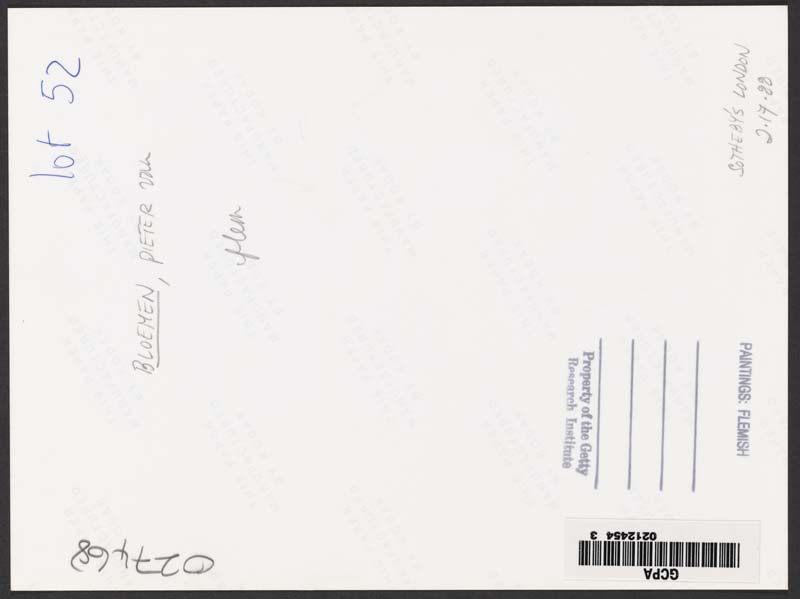 lot 52
BLOEMEN, PIETER van
flem
SOTHEBY'S LONDON
2·17·88
PAINTINGS: FLEMISH
Property of the Getty
Research Institute
GCPA
0212454 3
027468